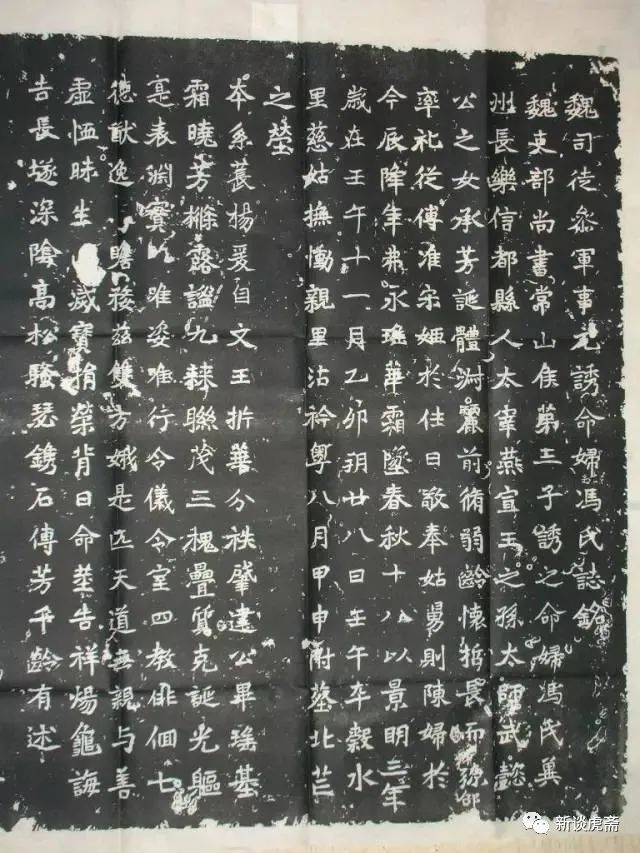 魏司徒叅軍事元誘命婦馮氏誌銘
魏吏部尚書常山侯第三子誘之命婦馮氏冀
州長樂信都縣人太宰燕宣王之孫太師武懿
公之女承芳誕體淑麗前脩弱齡懷哲長而
率礼從傅准宋姬於往日敬奉姑舅則陳婦於
今辰降年弗永瑤華霜墜春秋十八以景明三年
歲在壬午十一月乙卯朔廿八日壬午卒穀水
里慈姑撫慟親里沾衿粵八月甲申附墓北芒
之塋
本系萇楊爰自文王折華分袟肇建公畢瑤基
霜曉芳條露謐九棘聯茂三槐疊質克誕光軀
寔表淵實唯姿唯行令儀令室四教俳佪七
德猷逸瞻葰茲雙方娥是匹天道無親与善
虛恤昧生歲寶捐榮背日命筮告祥煬龜誨
吉長遂深陰高松騷瑟鐫石傳芳千齡有述
新谈虎斋